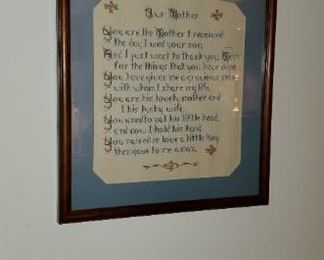 Our Mother
You are the Mother I received
the day I wed your son,
And I just want to thank you, Mom
for the things that you have done
You have given me a gracious
with whom I share my life
You are his lovely mother and
I his lucky wife
You used to pat his little head,
and now I hold his hand
You raised in love a little boy
then gave to me a man.